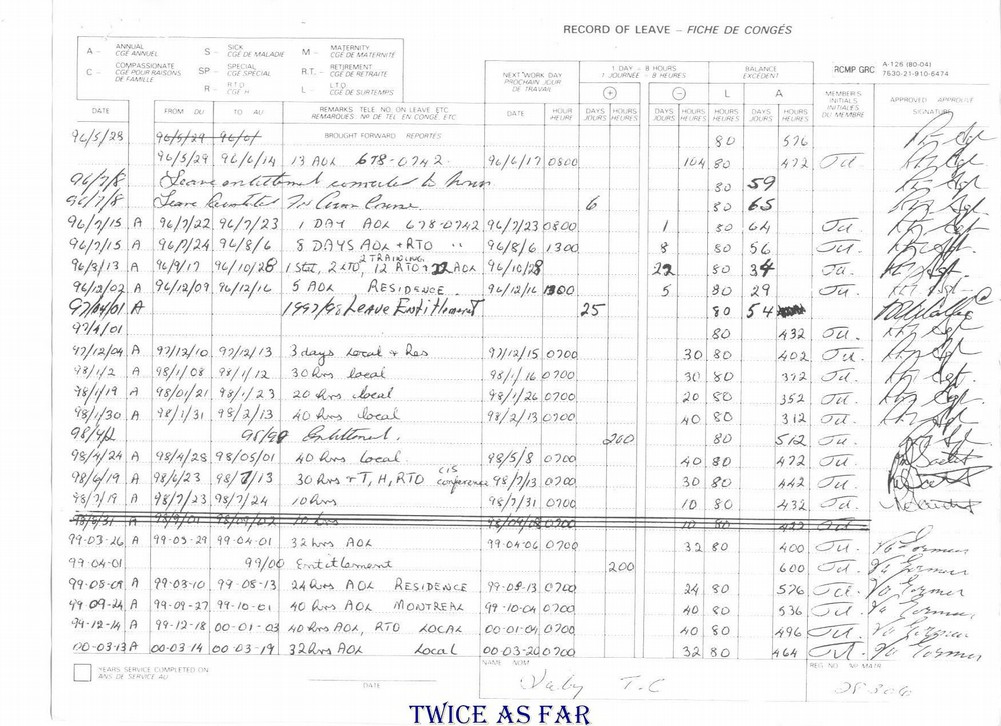 RECORD OF LEAVE – FICHE DE CONGÉS
A – ANNUAL CGÉ ANNUEL S – SICK CGÉ DE MALADIE M – MATERNITY CGÉ DE MATERNITÉ
C – COMPASSIONATE CGÉ POUR RAISONS DE FAMILLE SP – SPECIAL CGÉ SPÉCIAL R.T. – RETIREMENT CGÉ DE RETRAITE
R – R.T.O. CGÉ H L – L.T.O. CGÉ DE SURTEMPS
NEXT WORK DAY PROCHAIN JOUR DE TRAVAIL 1 DAY – 8 HOURS 1 JOURNÉE – 8 HEURES BALANCE EXCÉDENT RCMP GRC A-126 (80-04) 7530-21-910-6474
DATE FROM DU TO AU REMARKS TELE NO. ON LEAVE ETC. REMARQUES Nº DE TÉL EN CONGÉ, ETC. DATE HOUR HEURE + DAYS JOURS HOURS HEURES – DAYS JOURS HOURS HEURES L HOURS HEURES A DAYS JOURS HOURS HEURES MEMBER'S INITIALS INITIALES DU MEMBRE APPROVED APPROUVÉ SIGNATURE
96/5/28 96/5/29 BROUGHT FORWARD REPORTÉS 80 576
96/5/29 96/6/14 13 AOL 678-0742 96/6/17 0800 104 80 472
96/7/8 Leave entitlement converted to hours 80 59
96/7/8 Leave 6 80 65
96/7/15 A 96/7/22 96/7/23 1 DAY AOL 678-0742 96/7/23 0800 1 80 64
96/7/15 A 96/7/24 96/8/6 8 DAYS AOL + RTO " 96/8/6 1300 8 80 56
A 96/9/17 96/10/28 1 Stat, 2 LTO, 2 TRAINING, 12 RTO + 22 AOL 96/10/28 22 80 34
96/12/02 A 96/12/09 96/12/16 5 AOL RESIDENCE 96/12/16 1300 5 80 29
97/04/01 A 1997/98 Leave Entitlement 25 80 54
97/4/01 80 432
97/12/04 A 97/12/10 97/12/13 3 days Local + Res 97/12/15 0700 30 80 402
98/1/2 A 98/1/08 98/1/12 30 hrs local 98/1/16 0700 30 80 372
98/1/19 A 98/01/21 98/1/23 20 hrs local 98/1/26 0700 20 80 352
98/1/30 A 98/1/31 98/2/13 40 hrs local 98/2/13 0700 40 80 312
Entitlement. 200 80 512
98/4/24 A 98/4/28 98/05/01 40 hrs local 98/5/8 0700 40 80 472
98/6/19 A 98/6/23 98/7/13 30 hrs + T, H, RTO CIS conference 98/7/13 0700 30 80 442
98/7/19 A 98/7/23 98/7/24 10 hrs 98/7/31 0700 10 80 432
98/8/31 A 98/9/01 98/09/02 10 hrs 0700 10 80 422
99-03-26 A 99-03-29 99-04-01 32 hrs AOL 99-04-06 0700 32 80 400
99-04-01 99/00 Entitlement 200 600
A 99-03-10 99-08-13 24 hrs AOL RESIDENCE 99-08-13 0700 24 80 576
99-09-24 A 99-09-27 99-10-01 40 hrs AOL MONTREAL 99-10-04 0700 40 80 536
99-12-14 A 99-12-18 00-01-03 40 hrs AOL, RTO LOCAL 00-01-04 0700 40 80 496
00-03-13 A 00-03-14 00-03-19 32 hrs AOL Local 00-03-20 0700 32 80 464
YEARS SERVICE COMPLETED ON ANS DE SERVICE AU DATE NAME NOM T.C REG. NO. Nº MATR.
TWICE AS FAR